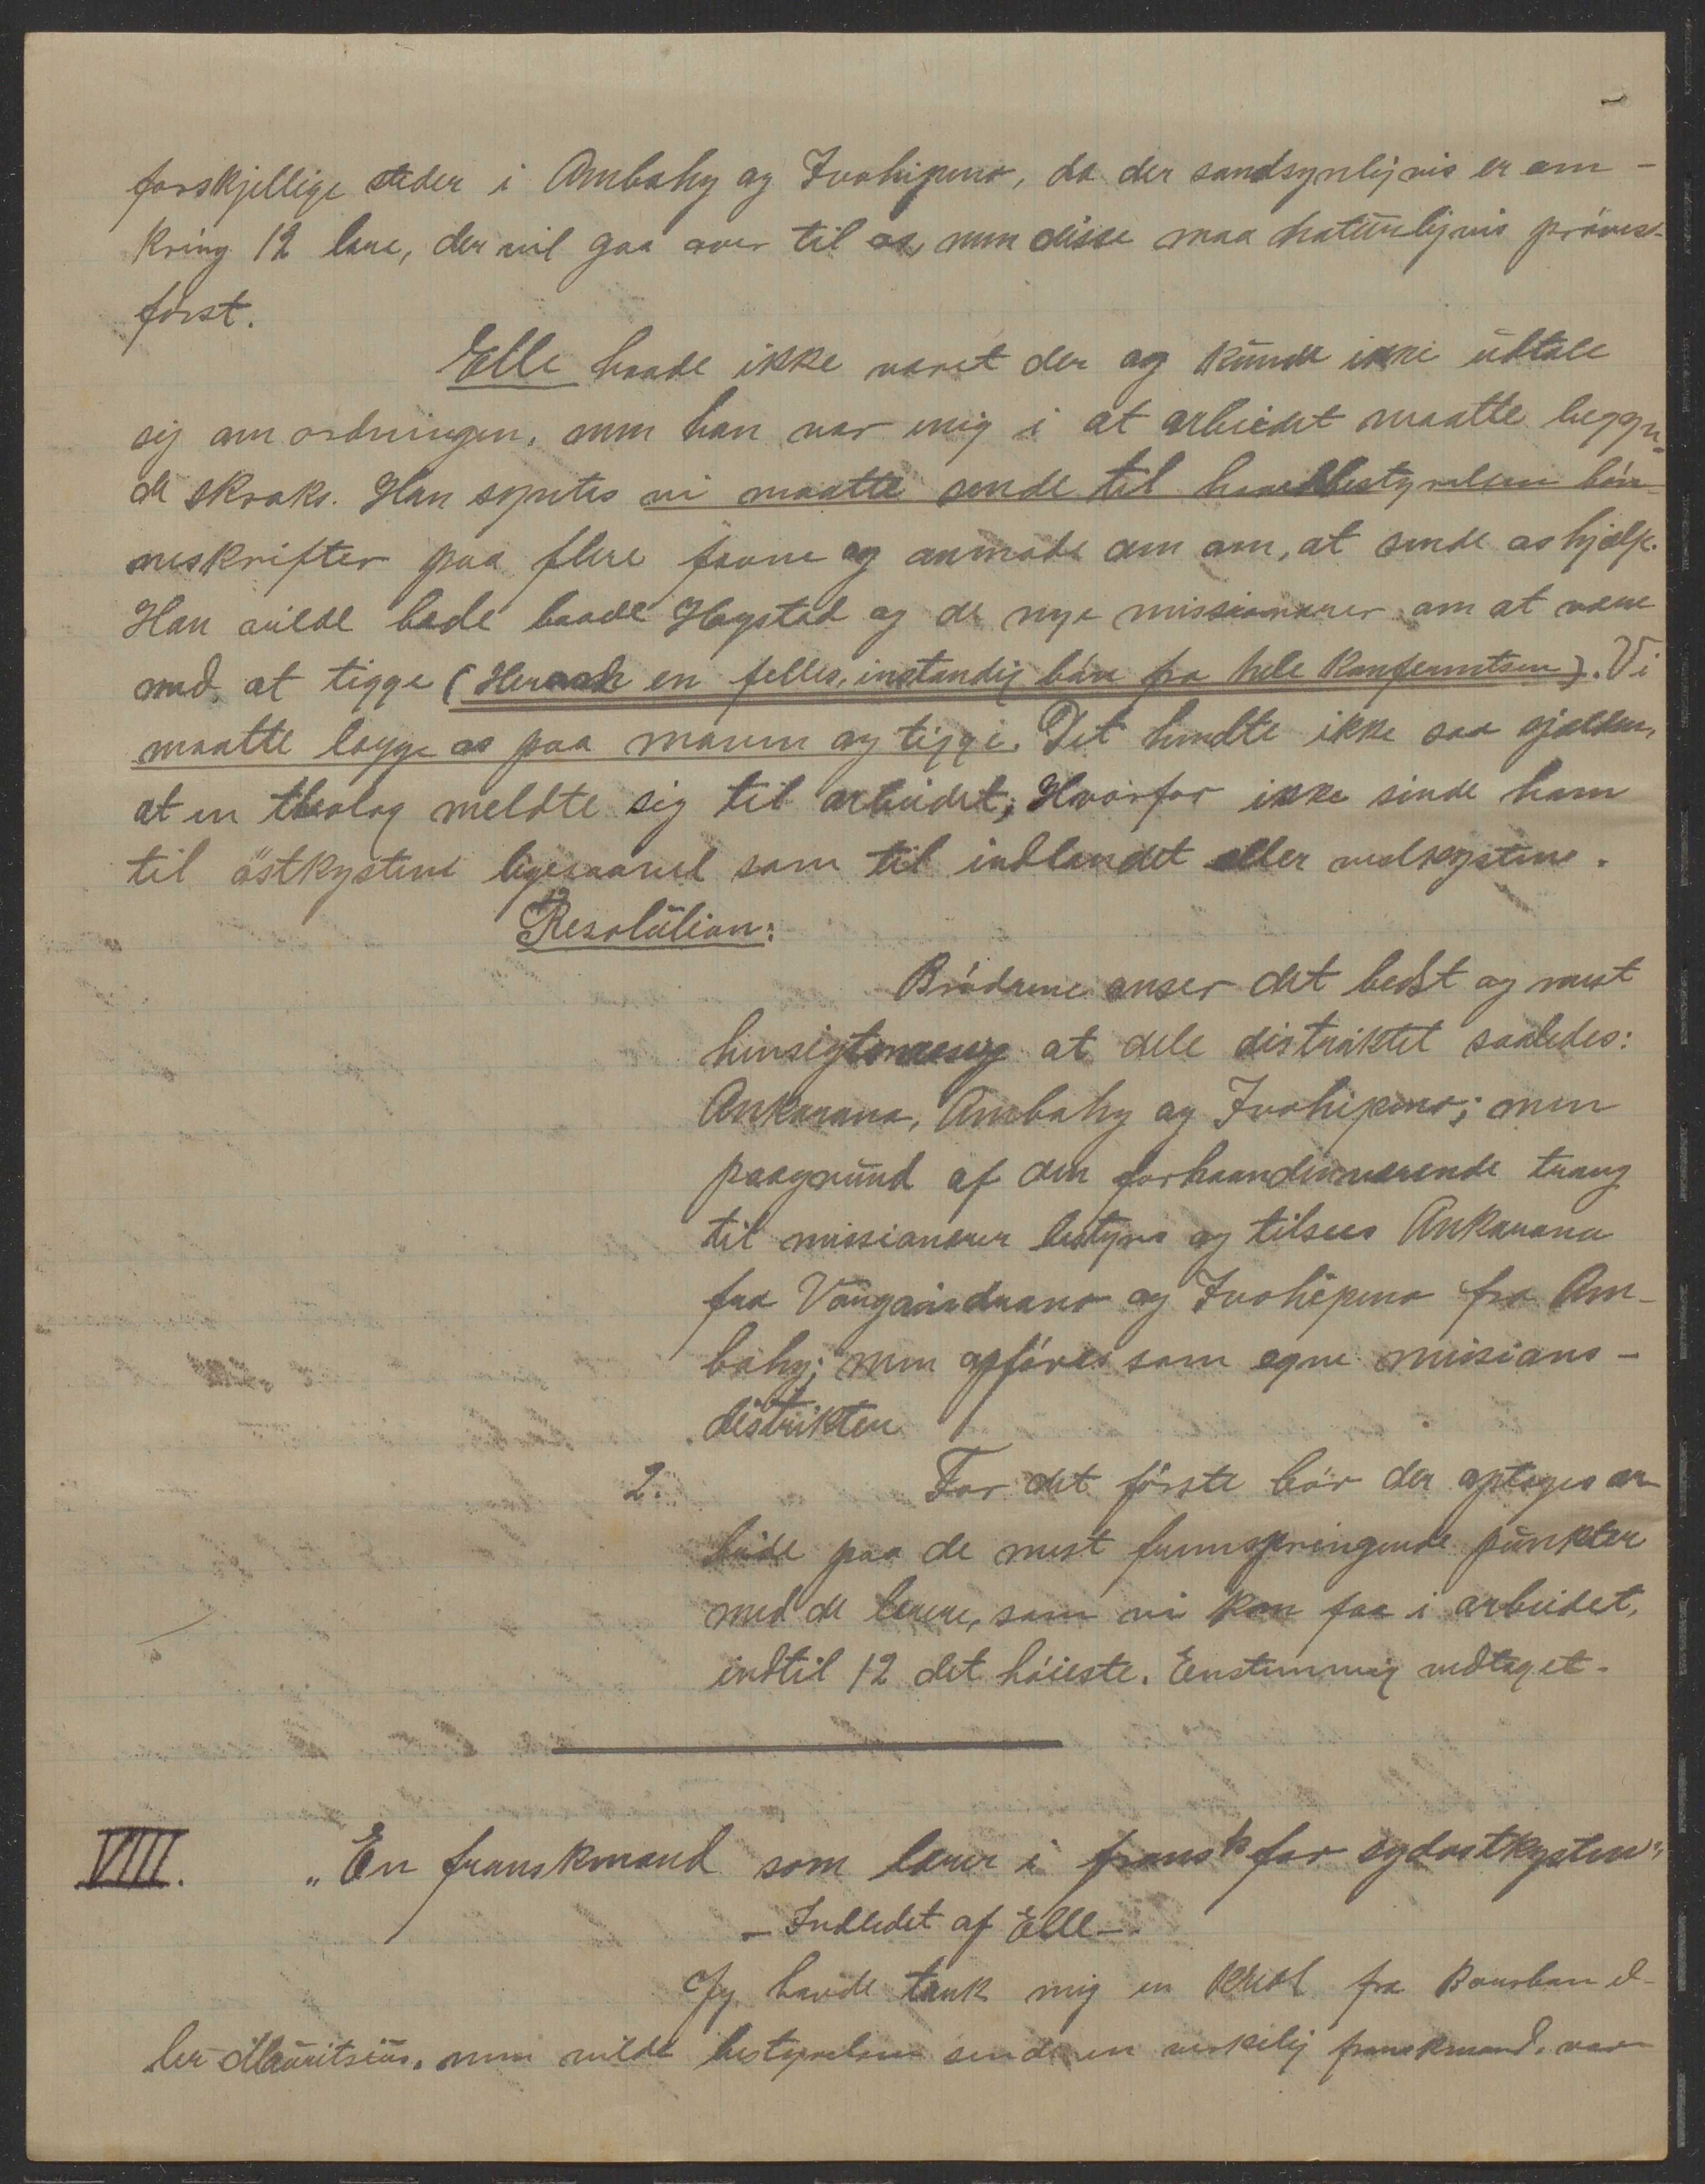 forskjellige steder i Ambahy og Ivohipeno, da der sandsynligvis er om-
kring 12 lærere, der vil gaa over til os, men disse maa naturligvis prøves
først.
Elle havde ikke været der og kunde ikke udtale
sig om ordningen, men han var enig i at arbeidet maatte begyn-
de straks. Han syntes vi maatte sende til hovedbestyrelsen bön-
neskrifter paa flere favne og anmode dem om, at sende os hjælp.
Han vilde bede baade Hogstad og de nye missionærer om at være
med at tigge (Herved en felles, instændig bön fra hele konferentsen). Vi
maatte lægge os paa maven og tigge. Det hendte ikke saa sjelden,
at en theolog meldte sig til arbeidet; Hvorfor ikke sende ham
til östkysten ligesaavel som til indlandet eller vestkysten.
Resolution:
Brödrene anser det bedst og mest
hensigtsmæssig at dele distriktet saaledes:
Ankarana, Ambahy og Ivohipeno; men
paagrund af den forhaandenværende trang
til missionærer bestyres og tilsees Ankarana
fra Vangaindrano og Ivohipeno fra Am-
bahy; men opföres som egne missions-
distrikter
2. For det förste bör der optages ar-
beide paa de mest fremspringende punkter
med de lærere, som vi kan faa i arbeidet,
indtil 12 det höieste. Enstemmig vedtaget.
VIII. „En franskmand som lærer i fransk for sydostkysten"
- Indledet af Elle -
Jeg havde tænk mig en kreol fra Bourbon el-
ler Mauritsius, men vilde bestyrelsen sende en virkelig franskmand, var